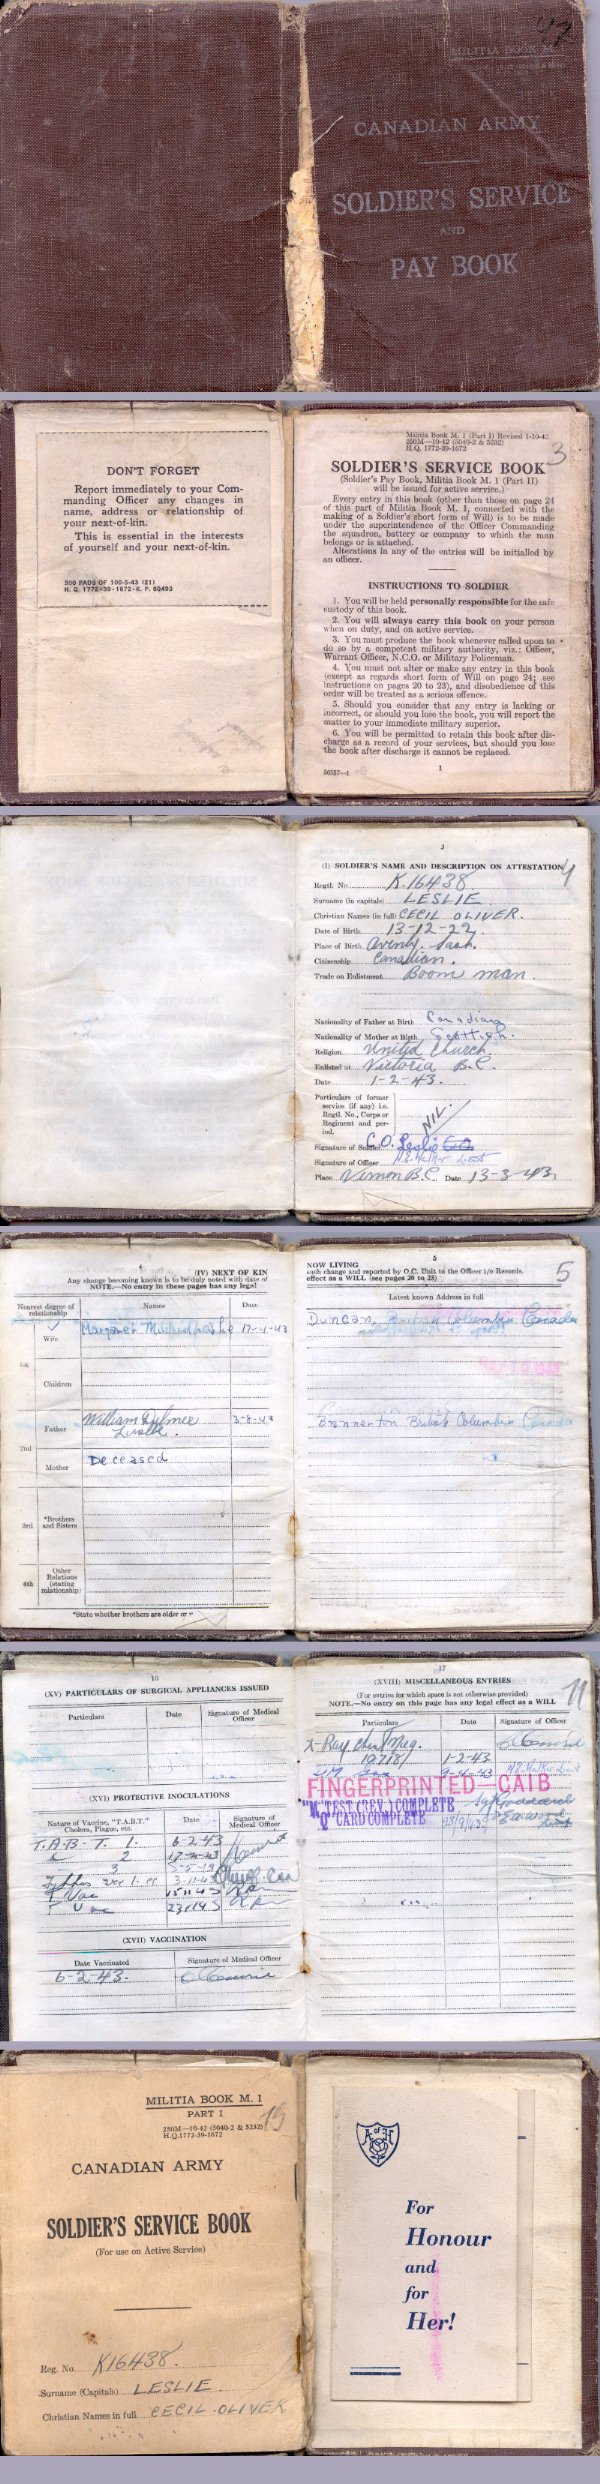 47
MILITIA BOOK M. 1
CANADIAN ARMY
SOLDIER'S SERVICE
AND
PAY BOOK
DON'T FORGET
Report immediately to your Com-
manding Officer any changes in
name, address or relationship of
your next-of-kin.
This is essential in the interests
of yourself and your next-of-kin.
500 PADS OF 100-5-43 (21)
H. Q. 1772-39-1672-K. P. 80493
Militia Book M. 1 (Part I) Revised 1-10-42
250M—10-42 (5040-2 & 5232)
H.Q. 1772-39-1672
3
SOLDIER'S SERVICE BOOK
(Soldier's Pay Book, Militia Book M. 1 (Part II)
will be issued for active service.)
Every entry in this book (other than those on page 24
of this part of Militia Book M. 1, connected with the
making of a Soldier's short form of Will) is to be made
under the superintendence of the Officer Commanding
the squadron, battery or company to which the man
belongs or is attached.
Alterations in any of the entries will be initialled by
an officer.
INSTRUCTIONS TO SOLDIER
1. You will be held personally responsible for the safe
custody of this book.
2. You will always carry this book on your person
when on duty, and on active service.
3. You must produce the book whenever called upon to
do so by a competent military authority, viz.: Officer,
Warrant Officer, N.C.O. or Military Policeman.
4. You must not alter or make any entry in this book
(except as regards short form of Will on page 24; see
instructions on pages 20 to 23), and disobedience of this
order will be treated as a serious offence.
5. Should you consider that any entry is lacking or
incorrect, or should you lose the book, you will report the
matter to your immediate military superior.
6. You will be permitted to retain this book after dis-
charge as a record of your services, but should you lose
the book after discharge it cannot be replaced.
56357—1
1
3
4
(I) SOLDIER'S NAME AND DESCRIPTION ON ATTESTATION
Regtl. No. K.16438
Surname (in capitals) LESLIE
Christian Names (in full) CECIL OLIVER.
Date of Birth 13-12-22
Place of Birth Sask.
Citizenship Canadian.
Trade on Enlistment Boom man.
Nationality of Father at Birth Canadian
Nationality of Mother at Birth Scottish.
Religion United Church.
Enlisted at Victoria B.C.
Date 1-2-43.
Particulars of former
service (if any) i.e.
Regtl. No., Corps or
Regiment and per-
iod.
NIL.
Signature of Soldier C.O. Leslie
Signature of Officer
Place Vernon B.C. Date 13-3-43.
4
(IV) NEXT OF KIN
Any change becoming known is to be duly noted with date of
NOTE.—No entry in these pages has any legal
Nearest degree of
relationship
Names
Date
1st
Wife
Margaret Mildred Leslie 17-4-43
Children
2nd
Father
William
Leslie.
3-8-43
Mother
Deceased
3rd
*Brothers
and Sisters
4th
Other
Relations
(stating
relationship)
*State whether brothers are older or y
5
5
NOW LIVING
such change and reported by O.C. Unit to the Officer i/c Records.
effect as a WILL (see pages 20 to 23)
Latest known Address in full
Duncan, British Columbia Canada
British Columbia Canada
16
(XV) PARTICULARS OF SURGICAL APPLIANCES ISSUED
Particulars
Date
Signature of Medical
Officer
(XVI) PROTECTIVE INOCULATIONS
Nature of Vaccine, "T.A.B.T."
Cholera, Plague, etc.
Date
Signature of
Medical Officer
T.A.B.T. 1. 6-2-43
2
3
T Vac 15-11-43
T Vac 23-11-43
(XVII) VACCINATION
Date Vaccinated
Signature of Medical Officer
6-2-43.
17
11
(XVIII) MISCELLANEOUS ENTRIES
(For entries for which space is not otherwise provided)
NOTE.—No entry on this page has any legal effect as a WILL
Particulars
Date
Signature of Officer
X-Ray Chest Neg.
19781 1-2-43
9-4-43
FINGERPRINTED—CAIB
"M" TEST (REV.) COMPLETE
"Q" CARD COMPLETE
MILITIA BOOK M. 1
PART I
250M—10-42 (5040-2 & 5232)
H.Q. 1772-39-1672
15
CANADIAN ARMY
SOLDIER'S SERVICE BOOK
(For use on Active Service)
Reg. No. K16438.
Surname (Capitals) LESLIE
Christian Names in full CECIL OLIVER
A of H
For
Honour
and
for
Her!